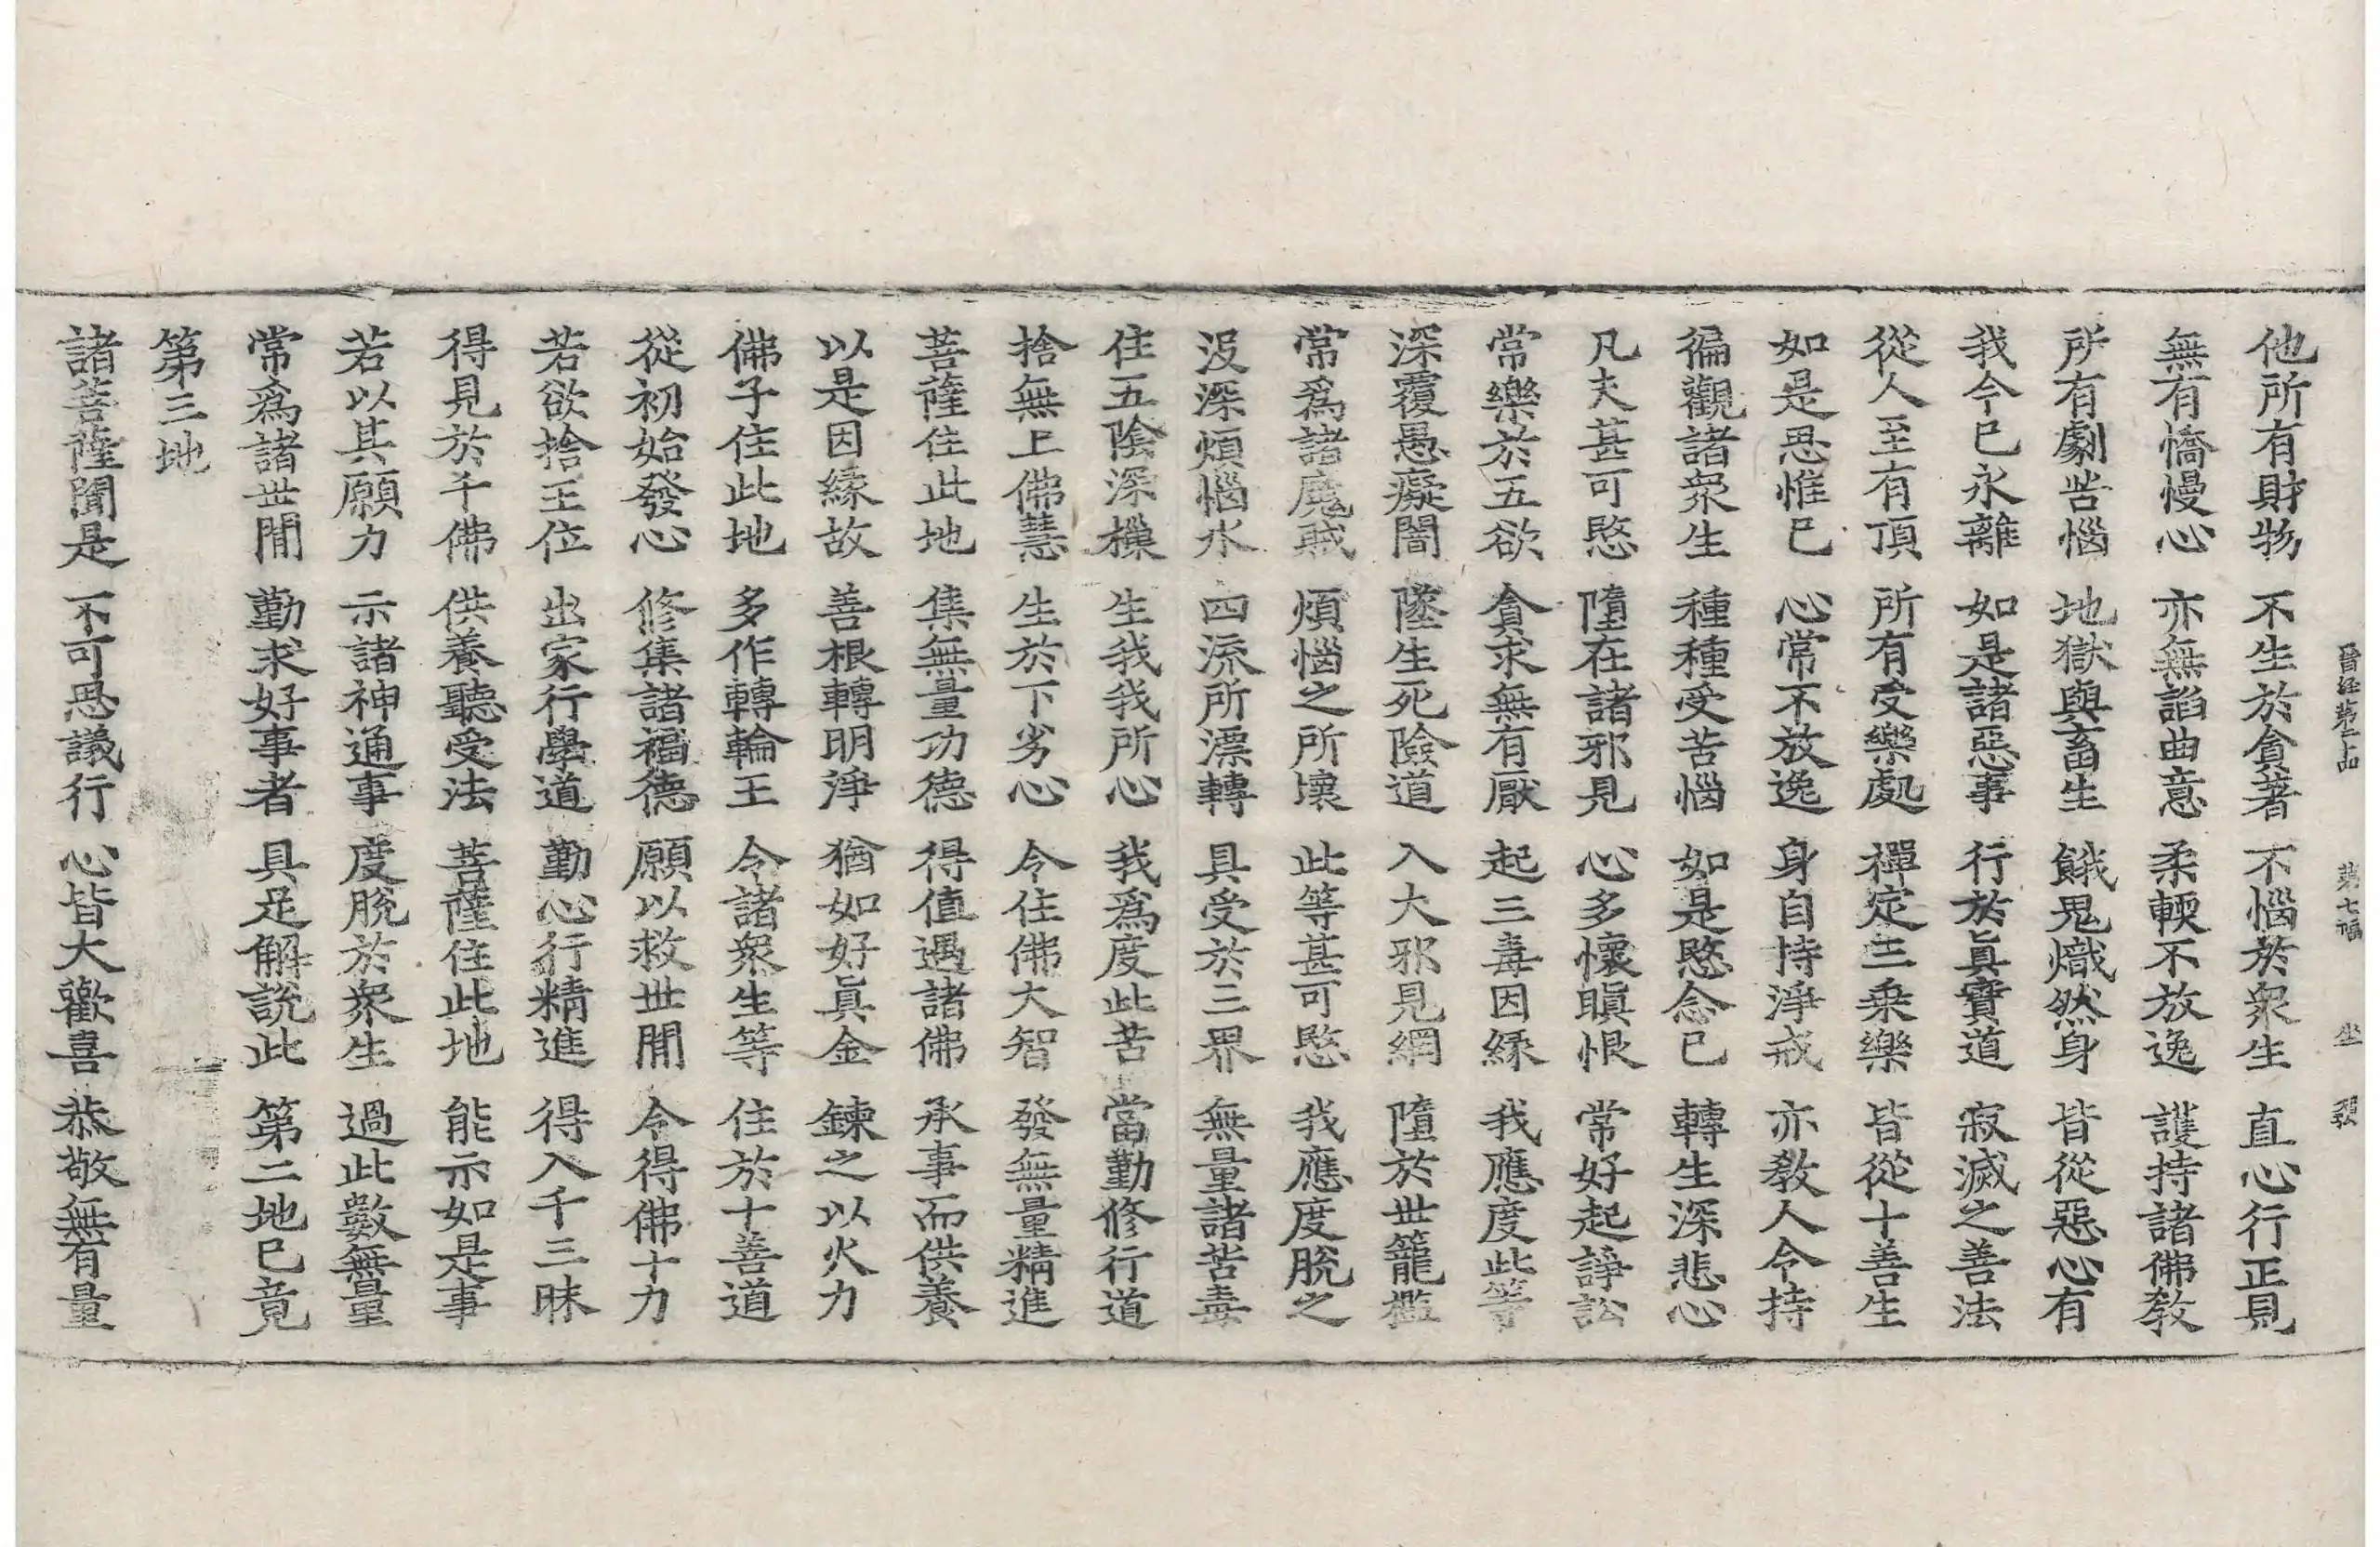 晉經第二十四 第七幅 坐 號
他所有財物 不生於貪著 不惱於衆生 直心行正見
無有憍慢心 亦無諂曲意 柔軟不放逸 護持諸佛教
所有劇苦惱 地獄與畜生 餓鬼熾然身 皆從惡心有
我今已永離 如是諸惡事 行於眞實道 寂滅之善法
從人至有頂 所有受樂處 禪定三乗樂 皆從十善生
如是思惟已 心常不放逸 身自持淨戒 亦教人令持
徧觀諸衆生 種種受苦惱 如是愍念已 轉生深悲心
凡夫甚可愍 墮在諸邪見 心多懷瞋恨 常好起諍訟
常樂於五欲 貪求無有厭 起三毒因緣 我應度此等
深覆愚癡闇 墜生死險道 入大邪見網 墮於世籠檻
常爲諸魔賊 煩惱之所壞 此等甚可愍 我應度脫之
没深煩惱水 四流所漂轉 具受於三界 無量諸苦毒
住五陰深樔 生我我所心 我爲度此苦 當勤修行道
捨無上佛慧 生於下劣心 令住佛大智 發無量精進
菩薩住此地 集無量功德 得值遇諸佛 承事而供養
以是因緣故 善根轉明淨 猶如好眞金 鍊之以火力
佛子住此地 多作轉輪王 令諸衆生等 住於十善道
從初始發心 修集諸福德 願以救世閒 令得佛十力
若欲捨王位 出家行學道 勤心行精進 得入千三昧
得見於千佛 供養聽受法 菩薩住此地 能示如是事
若以其願力 示諸神通事 度脫於衆生 過此數無量
常爲諸世閒 勤求好事者 具足解說此 第二地已竟
第三地
諸菩薩聞是 不可思議行 心皆大歡喜 恭敬無有量